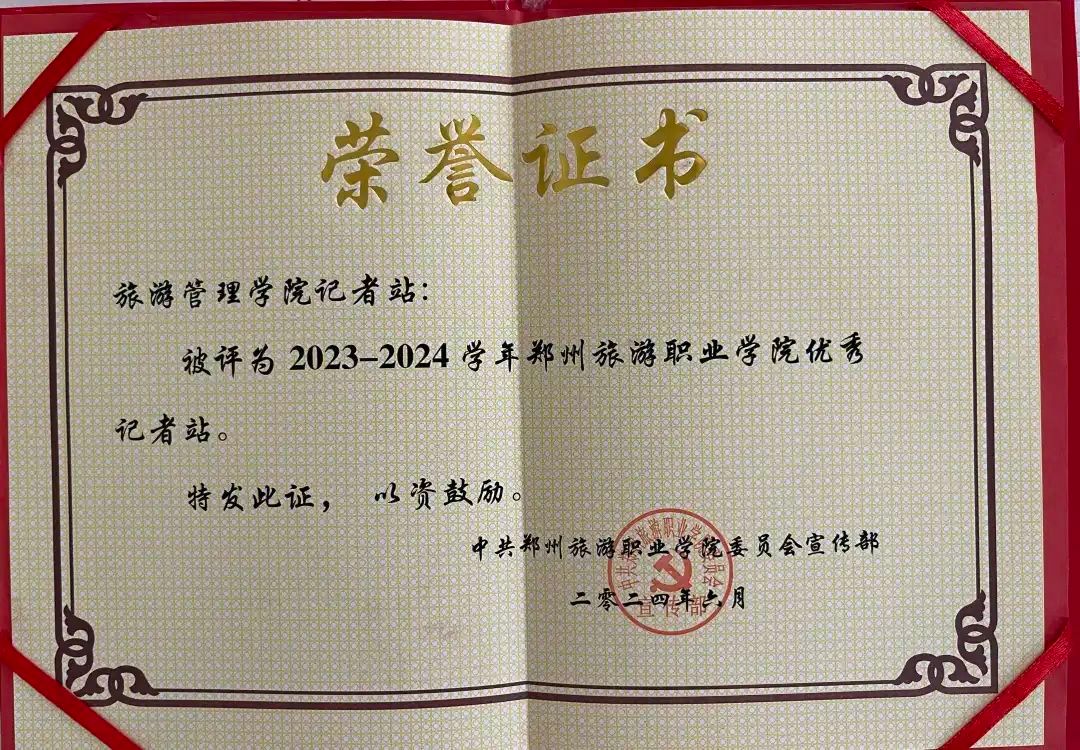 荣誉证书
旅游管理学院记者站：
被评为 2023-2024 学年郑州旅游职业学院优秀
记者站。
特发此证， 以资鼓励。
中共郑州旅游职业学院委员会宣传部
二零二四年六月
中共郑州旅游职业学院委员会
宣传部